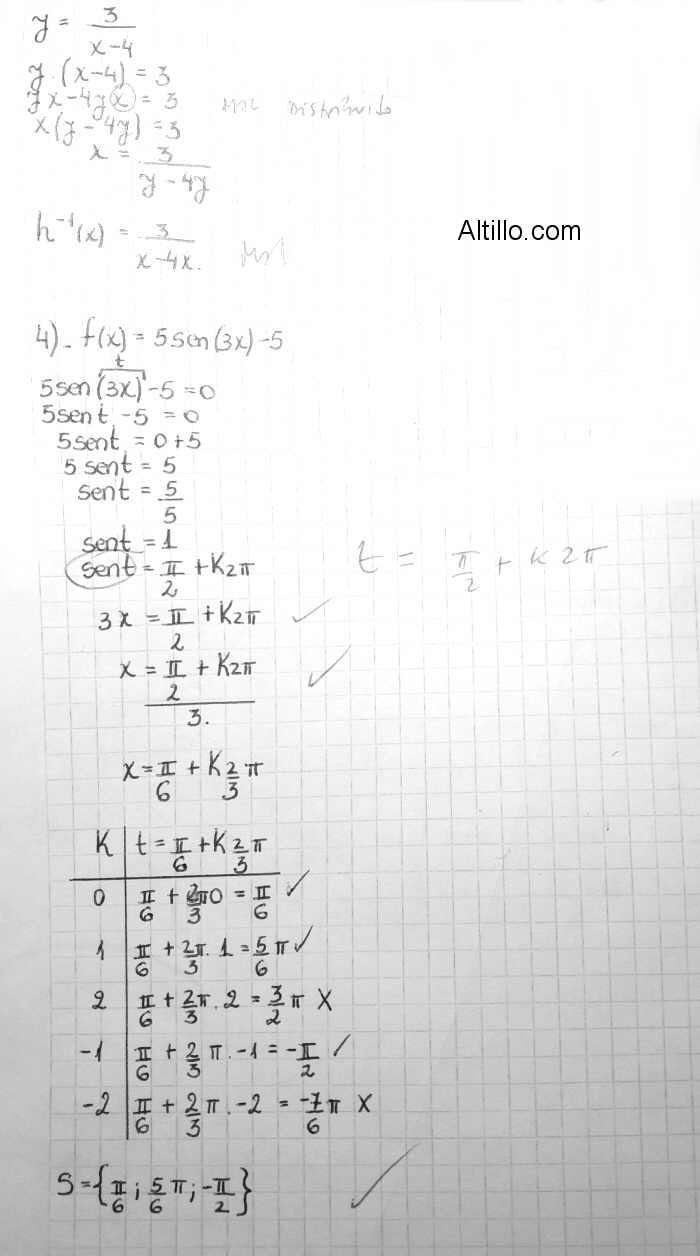 y = 3/(x-4)
y.(x-4) = 3
yx-4yx = 3 mal Distribuido
x(y-4y) = 3
x = 3/(y-4y)
h⁻¹(x) = 3/(x-4x). Mal
Altillo.com
4)_ f(x) = 5sen(3x)-5
t
5sen(3x)-5 = 0
5sent -5 = 0
5sent = 0+5
5 sent = 5
sent = 5/5
sent = 1
sent = π/2 + K2π t = π/2 + K2π
3x = π/2 + K2π ✓
x = (π/2 + K2π)/3. ✓
x = π/6 + K 2/3 π
K | t = π/6 + K 2/3 π
0 | π/6 + 2/3 π0 = π/6 ✓
1 | π/6 + 2/3 π. 1 = 5/6 π ✓
2 | π/6 + 2/3 π. 2 = 3/2 π X
-1 | π/6 + 2/3 π. -1 = -π/2 ✓
-2 | π/6 + 2/3 π. -2 = -7/6 π X
S = {π/6 ; 5/6 π ; -π/2} ✓